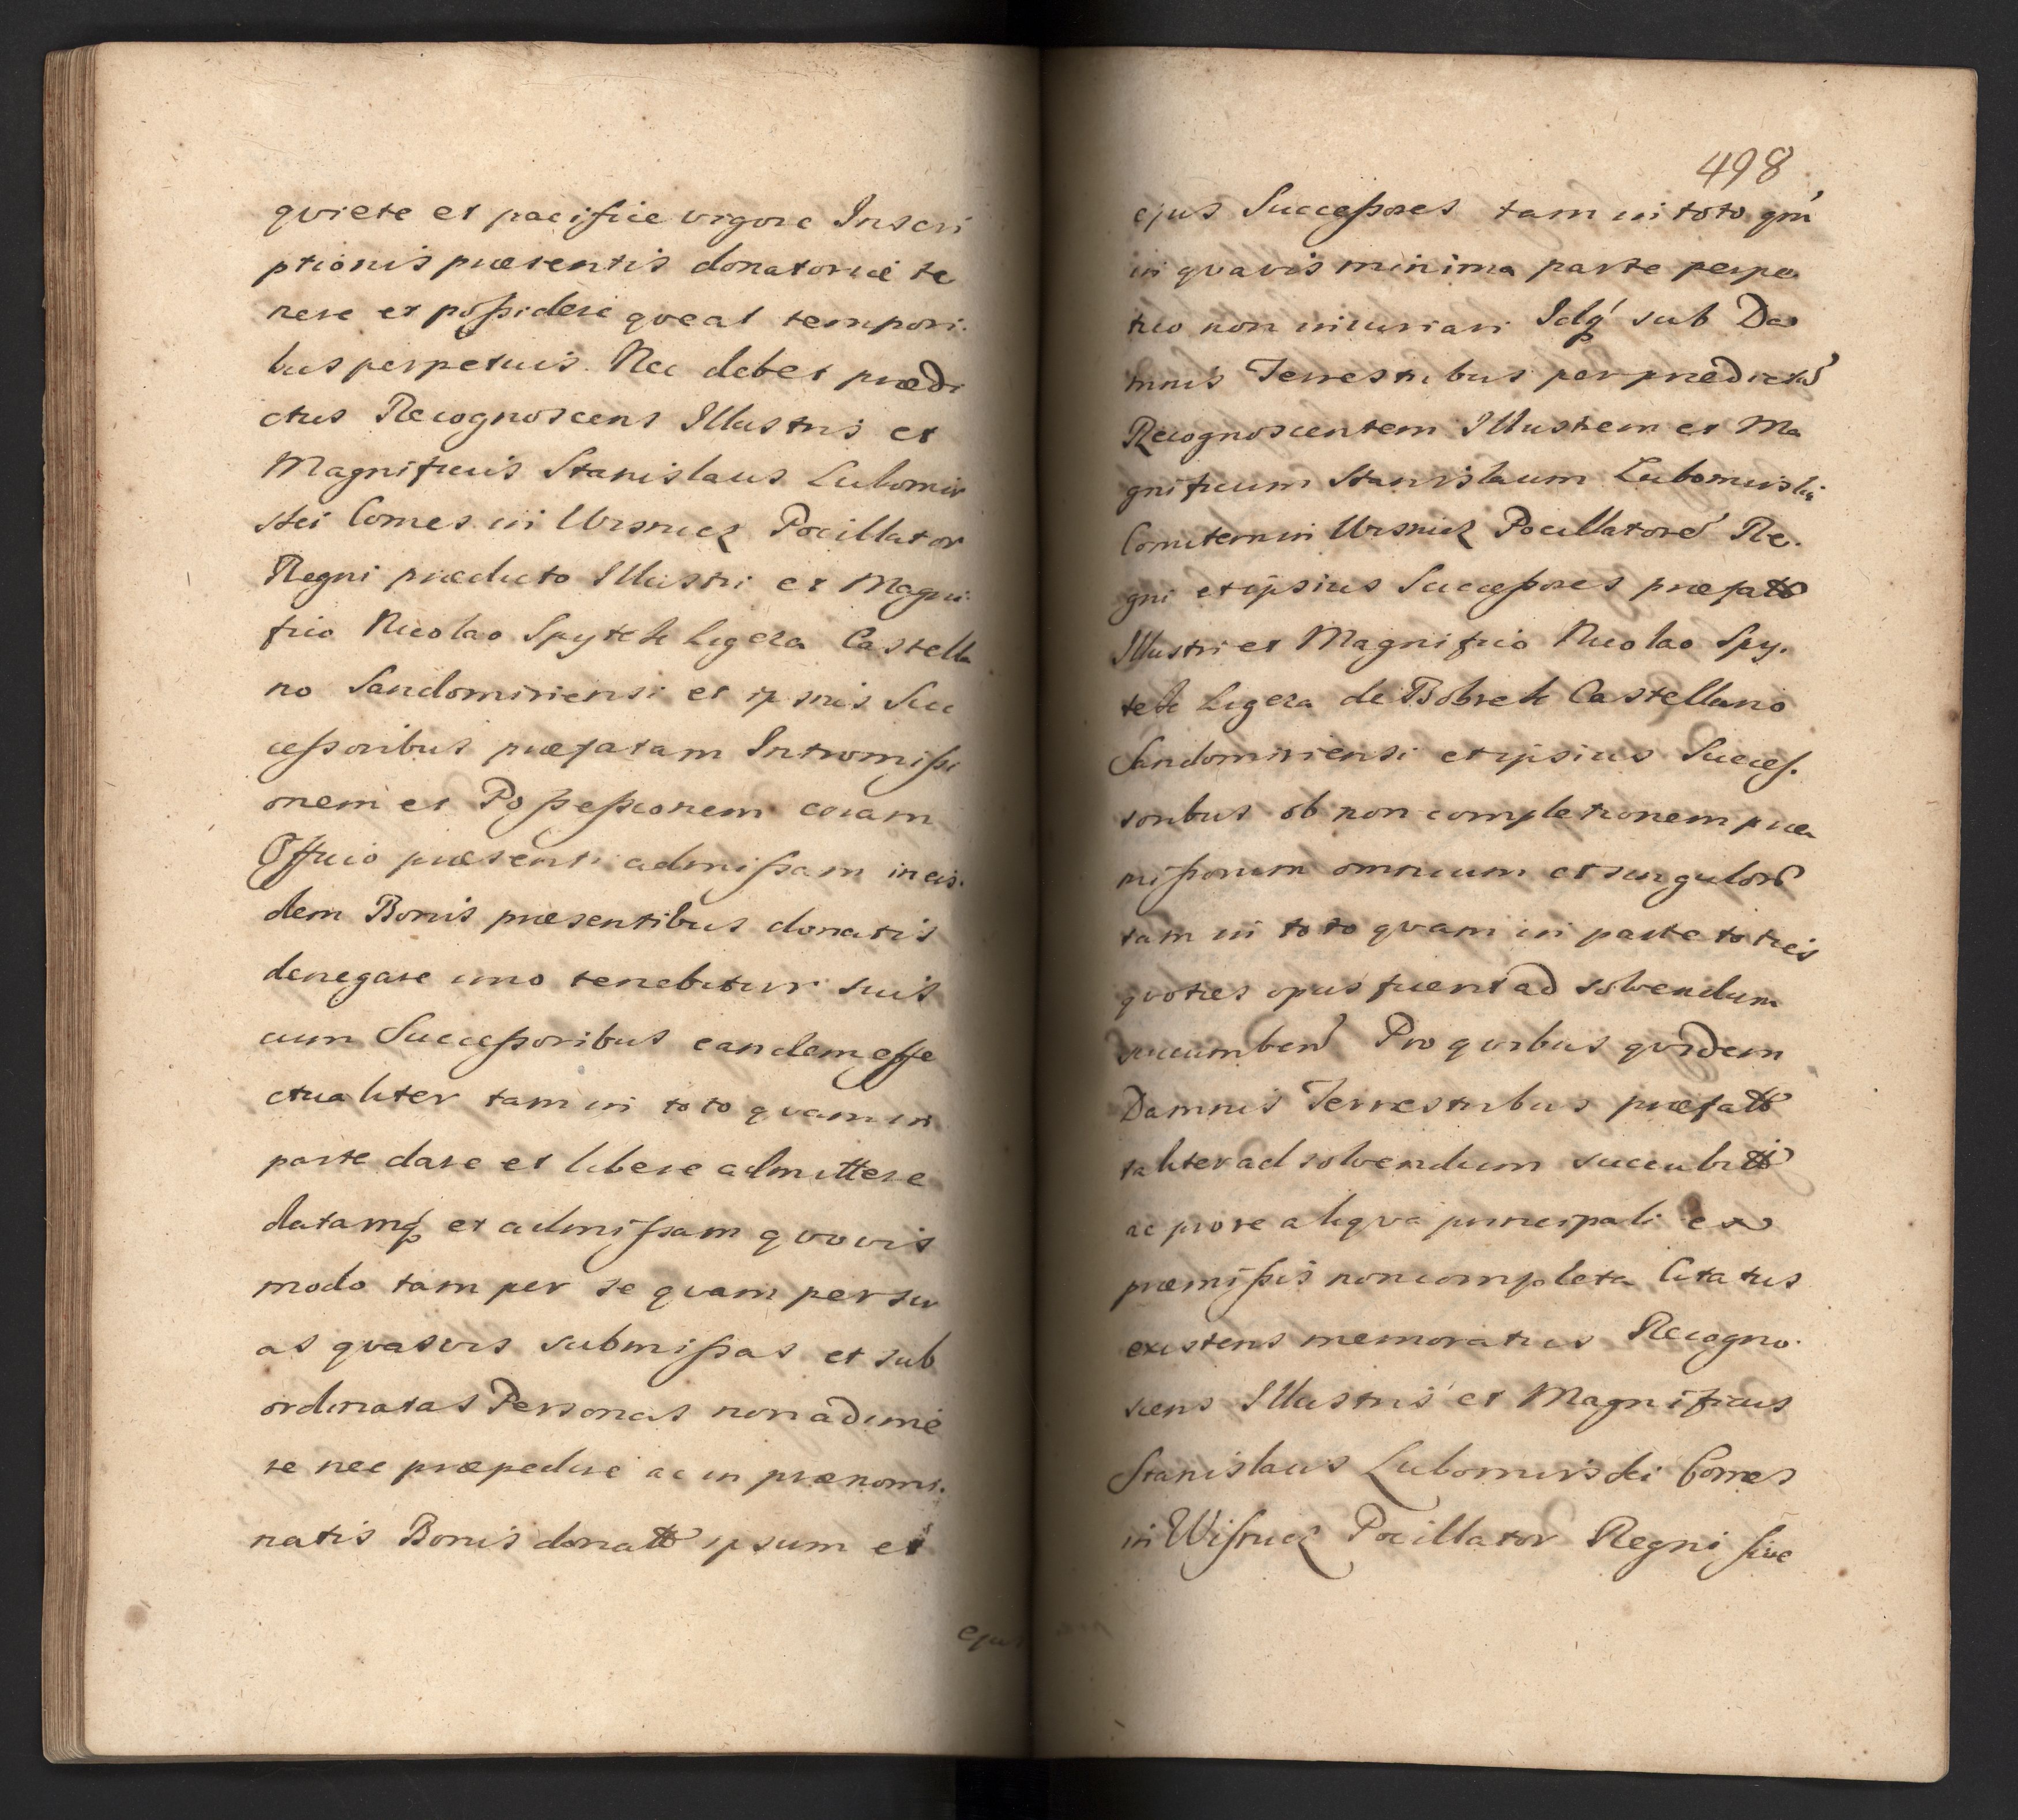 qviete et pacifice vigore Inscri
ptionis præsentis donatoriæ te
nere et possidere qveat tempori.
bus perpetuis. Nec debet prædi
ctus Recognoscens Illustris et
Magnificus Stanislaus Lubomir
skei Comes in Visnicz Pocillator
Regni prædicto Illustri et Magni
fico Nicolao Spytek Ligeza Castella
no Sandomiriensi et ipsius Suc
cessoribus præfatam Intromissi
onem et Possessionem coram
Officio præsenti admissam in eis.
dem Bonis præsentibus donatis
denegare imo tenebitur suis
cum Successoribus eandem effe
ctualiter tam in toto qvam in
parte dare et libere admittere
datamq́ et admissam qvovis
modo tam per se qvam per su
as qvasvis submissas et sub
ordinatas Personas non adime
re nec præpedire ac in prænomi.
natis Bonis donatt ipsum et
ejus
498
ejus Successores tam in toto qm̃
in qvavis minima parte perpe
tuo non iniuriari Idq́ sub Da
mnis Terrestribus per prædictu
Recognoscentem Illustrem et Ma
gnificum Stanislaum Lubomirski
Comitem in Visnicz Pocillatore Re.
gni et ipsius Successores præfatt
Illustri et Magnifico Nicolao Spy.
tek Ligeza de Bobrek Castellano
Sandomiriensi et ipsius Succes.
soribus ob non completionem præ
missorum omnium et singulor
tam in toto qvam in parte toties
qvoties opus fuerit ad solvendum
succumben Pro qvibus qvidem
Damnis Terrestribus præfatt
taliter ad solvendum succubitt
ac pro re aliqva principali ex
præmissis non completa Citatus
existens memoratus Recogno.
scens Illustris et Magnificus
Stanislaus Lubomirskei Comes
in Wisnicz Pocillator Regni sive